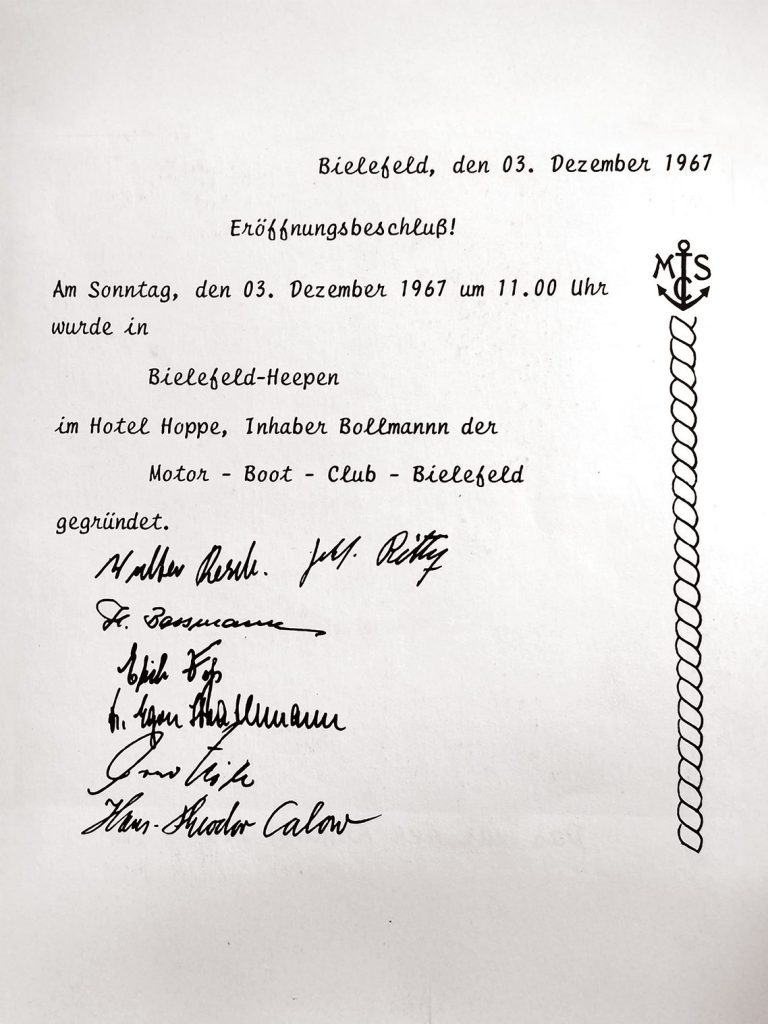 Bielefeld, den 03. Dezember 1967
Eröffnungsbeschluß!
Am Sonntag, den 03. Dezember 1967 um 11.00 Uhr
wurde in
Bielefeld-Heepen
im Hotel Hoppe, Inhaber Bollmannn der
Motor - Boot - Club - Bielefeld
gegründet.
MCS
Walter Resch.
H. Bossmann
Erich
Egon
Hans-Theodor Calow